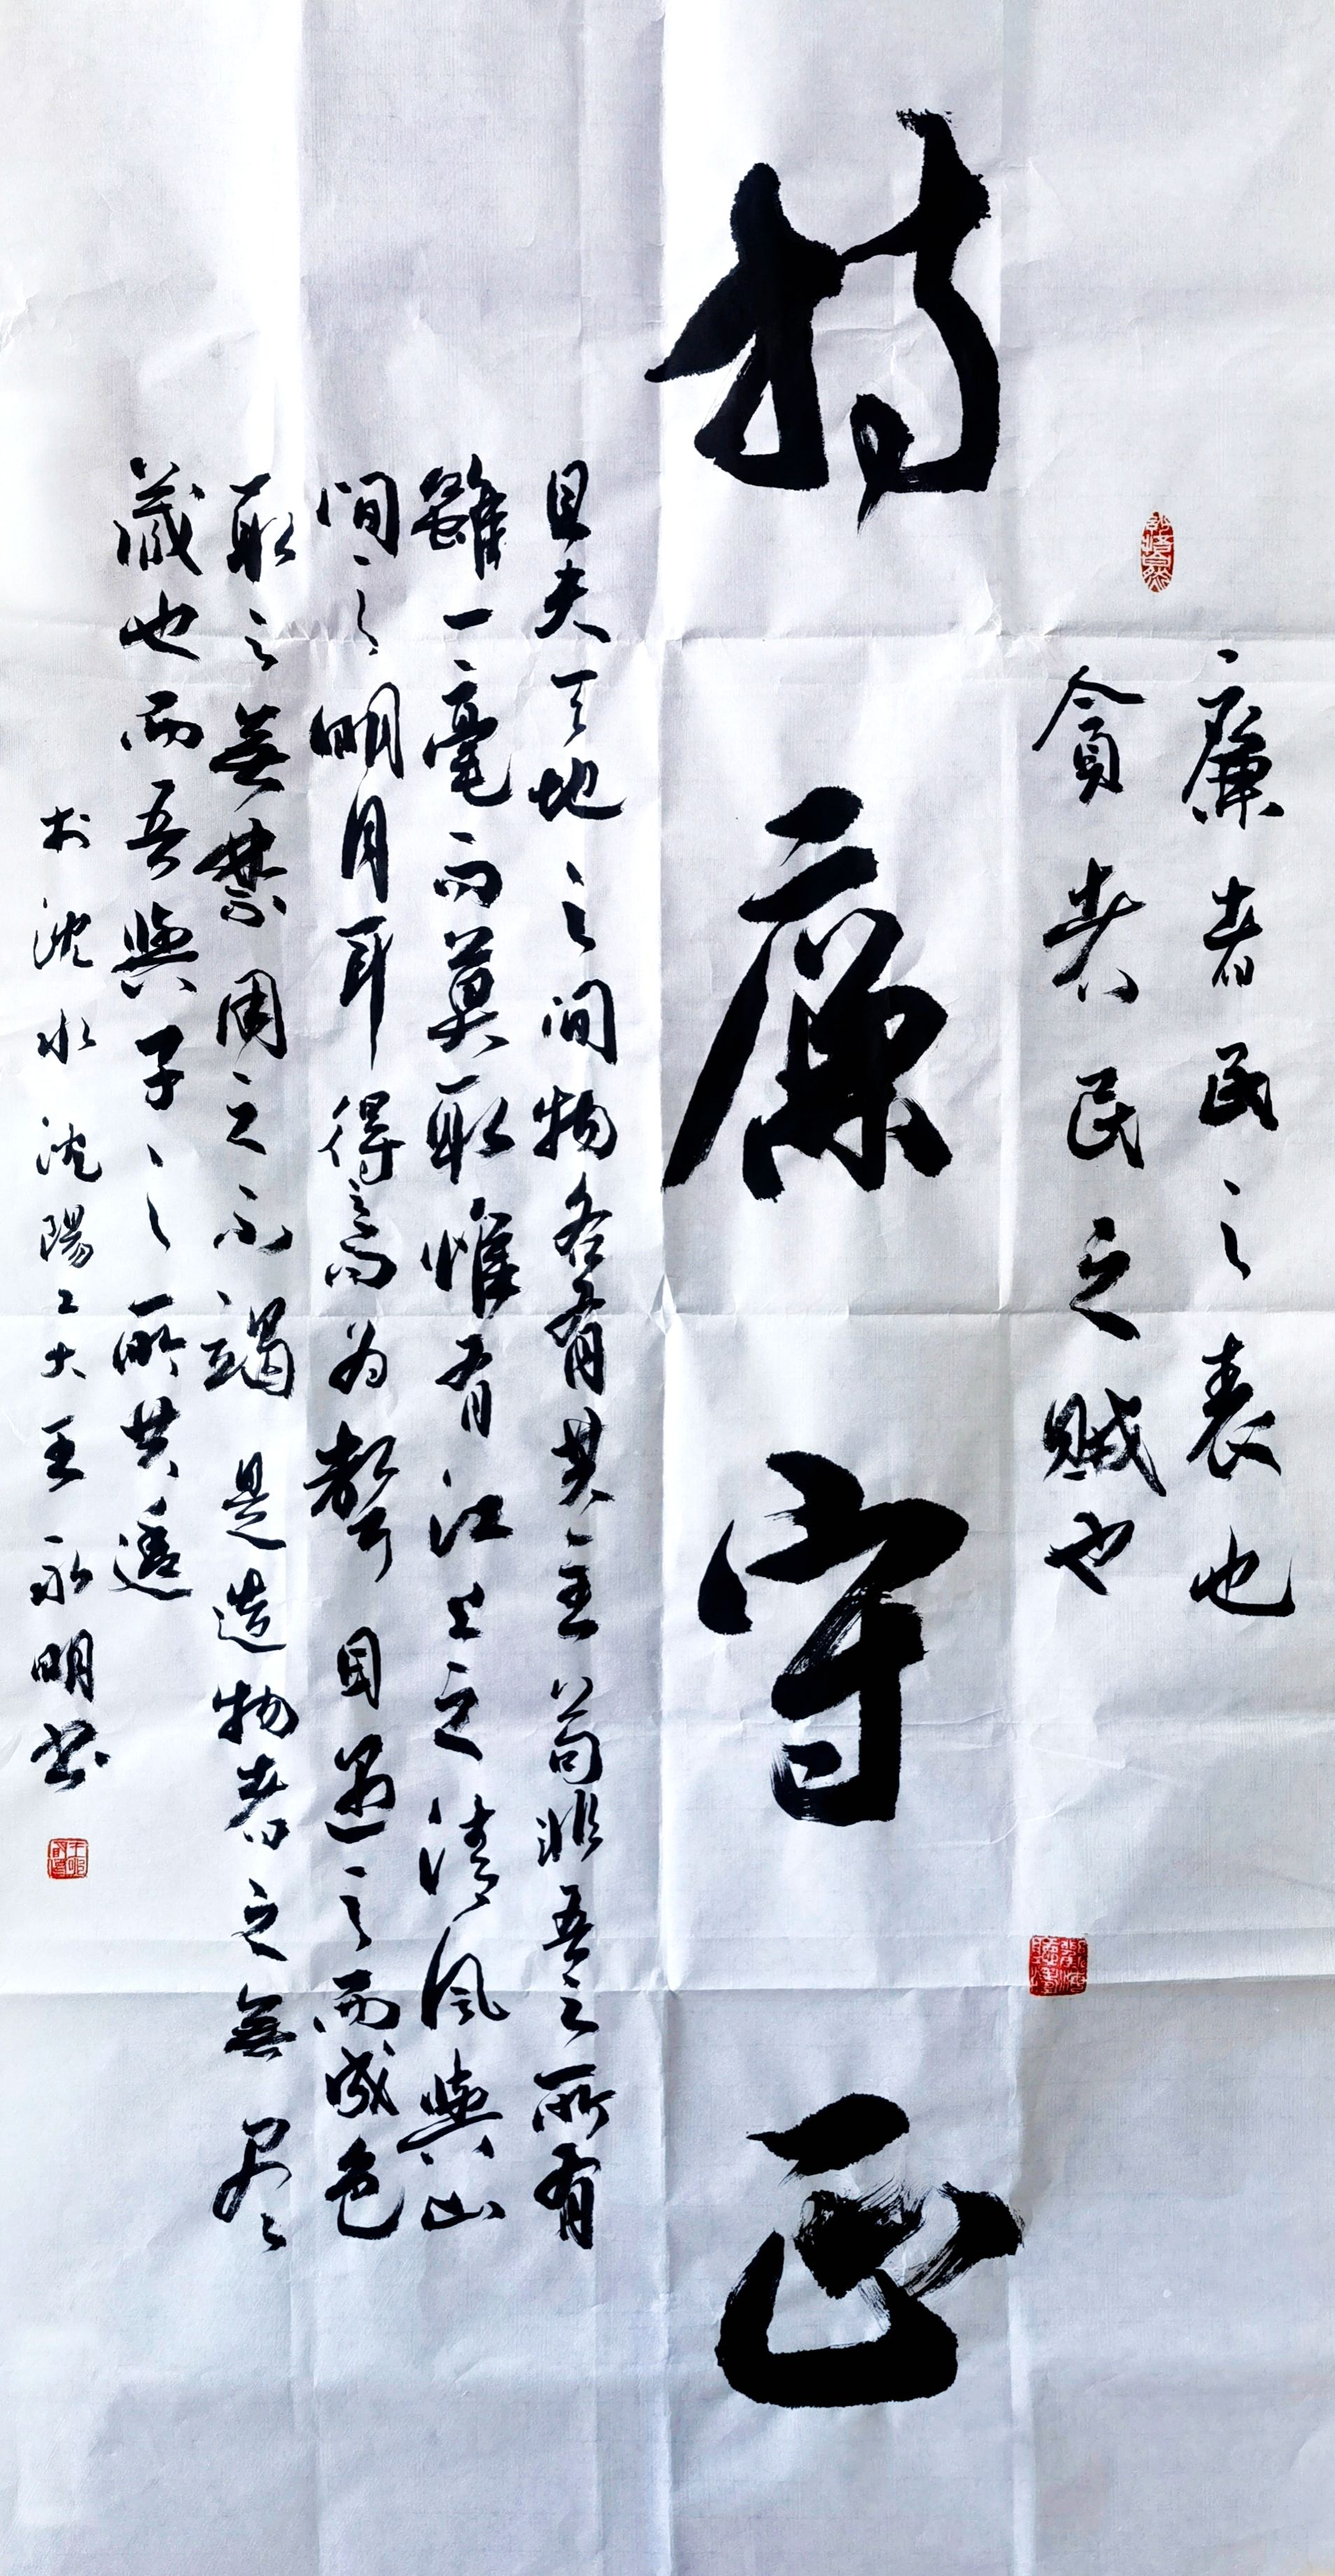 廉者民之表也
貪者民之賊也
持廉守正
且夫天地之间物各有其主苟非吾之所有
雖一毫而莫取惟有江上之清風與山
间之明月耳得之而为聲目遇之而成色
取之無禁用之不竭是造物者之無尽
藏也而吾與子之所共適
於沈水沈陽工大王永明书